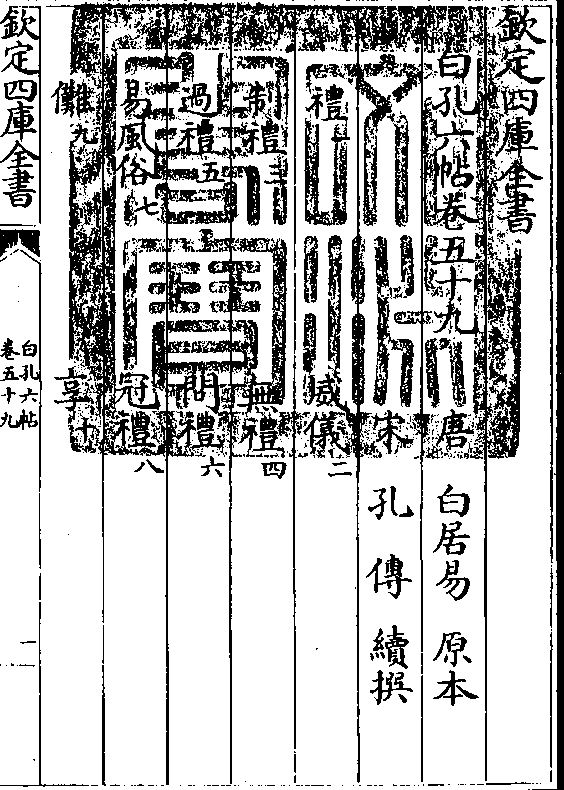 欽定四庫全書
白孔六帖卷五十九 唐 白居易 原本
宋 孔傳 續撰
禮一 威儀二
制禮三 無禮四
過禮五 問禮六
易風俗七 冠禮八
儺九 享十
欽定四庫全書
白孔六帖
卷五十九
一